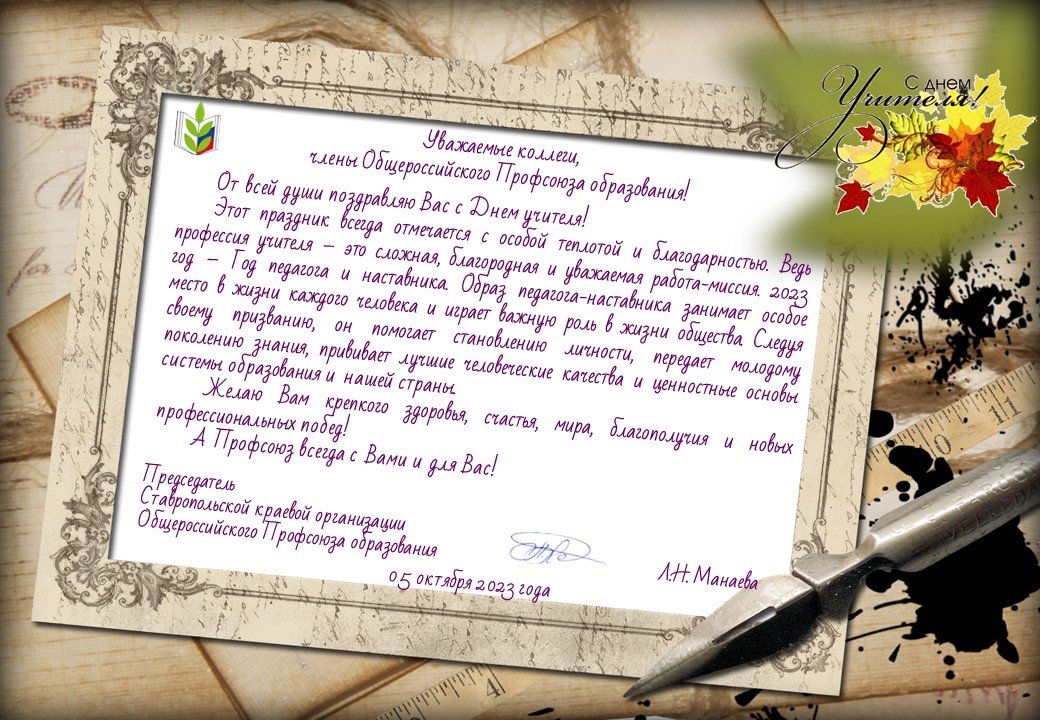 С днем
Учителя!
Уважаемые коллеги,
члены Общероссийского Профсоюза образования!
От всей души поздравляю Вас с Днем учителя!
Этот праздник всегда отмечается с особой теплотой и благодарностью. Ведь
профессия учителя – это сложная, благородная и уважаемая работа-миссия. 2023
год – Год педагога и наставника. Образ педагога-наставника занимает особое
место в жизни каждого человека и играет важную роль в жизни общества. Следуя
своему призванию, он помогает становлению личности, передает молодому
поколению знания, прививает лучшие человеческие качества и ценностные основы
системы образования и нашей страны.
Желаю Вам крепкого здоровья, счастья, мира, благополучия и новых
профессиональных побед!
А Профсоюз всегда с Вами и для Вас!
Председатель
Ставропольской краевой организации
Общероссийского Профсоюза образования
Л.Н. Манаева
05 октября 2023 года
11
4